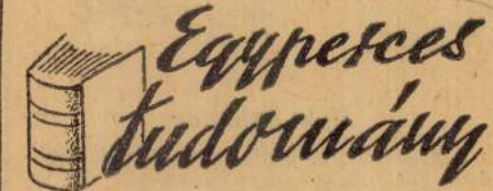 Egyperces
tudomány